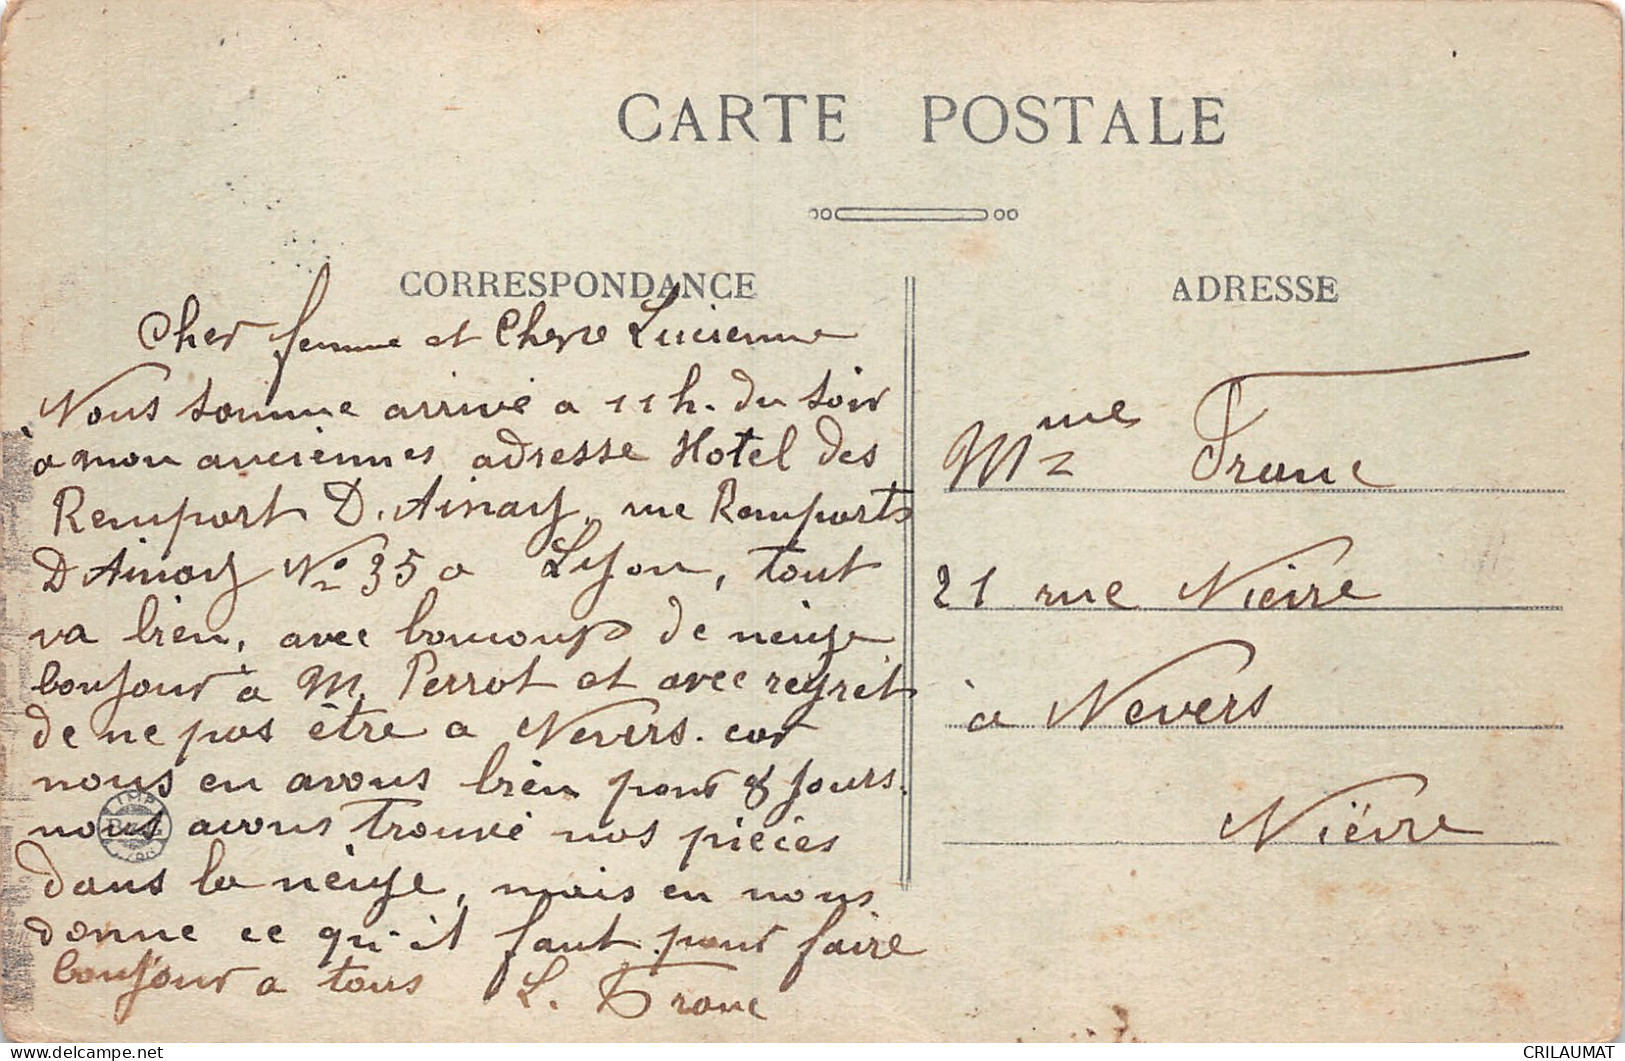 CARTE POSTALE
CORRESPONDANCE
ADRESSE
Cher femme et Chere Lucienne
Nous somme arrivé a 11h. du soir
a mon anciennes adresse Hotel des
Remport D. Ainay, rue Remparts
D Ainay No 35 a Lyon, tout
va bien, avec boucoups de neige
bonjour à M. Perrot et avec regret
de ne pas être a Nevers. car
nous en avons bien pour 8 jours.
nous avons trouvé nos pièces
dans la neige, mais en nous
donne ce qu'il faut pour faire
bonjour a tous L. Franc
Mme Franc
21 rue Nièvre
à Nevers
Nièvre
IMP
delcampe.net
CRILAUMAT